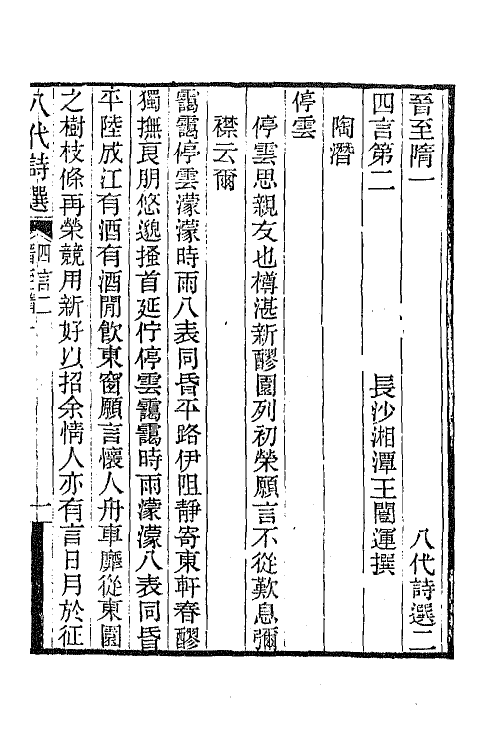 晉至隋一　八代詩選二
四言第二　長沙湘潭王闓運撰
陶潛
停雲
停雲思親友也樽湛新醪園列初榮願言不從歎息彌
襟云爾
靄靄停雲濛濛時雨八表同昏平路伊阻靜寄東軒春醪
獨撫良朋悠邈搔首延佇停雲靄靄時雨濛濛八表同昏
平陸成江有酒有酒閒飮東窗願言懷人舟車靡從東園
之樹枝條再榮競用新好以招余情人亦有言日月於征
八代詩選　四言二　晉至隋一　一